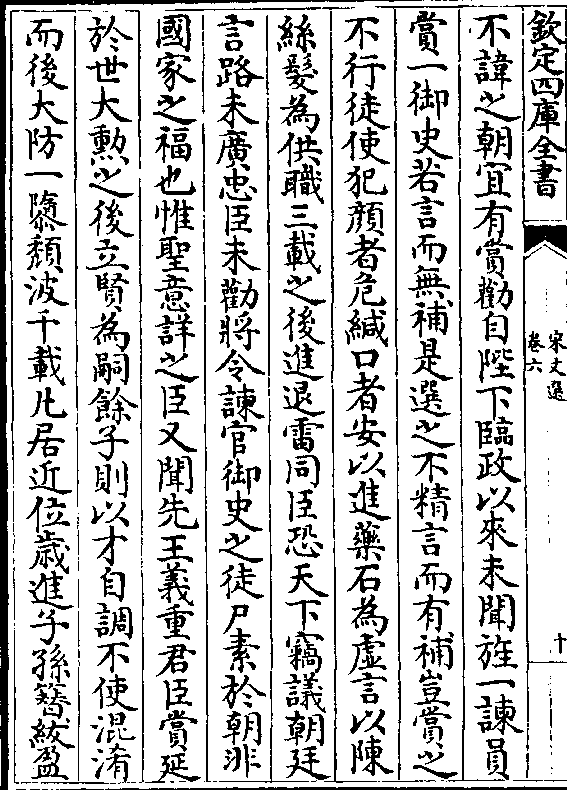 欽定四庫全書
宋文選
卷六
十
不諱之朝宜有賞勸自陛下臨政以來未聞旌一諫員
賞一御史若言而無補是選之不精言而有補豈賞之
不行徒使犯顔者危緘口者安以進藥石為虚言以陳
絲髮為供職三載之後進退雷同臣恐天下竊議朝廷
言路未廣忠臣未勸將令諫官御史之徒尸素於朝非
國家之福也惟聖意詳之臣又聞先王義重君臣賞延
於世大勲之後立賢為嗣餘子則以才自調不使混淆
而後大防一隳頽波千載凡居近位歲進子孫簮紱盈